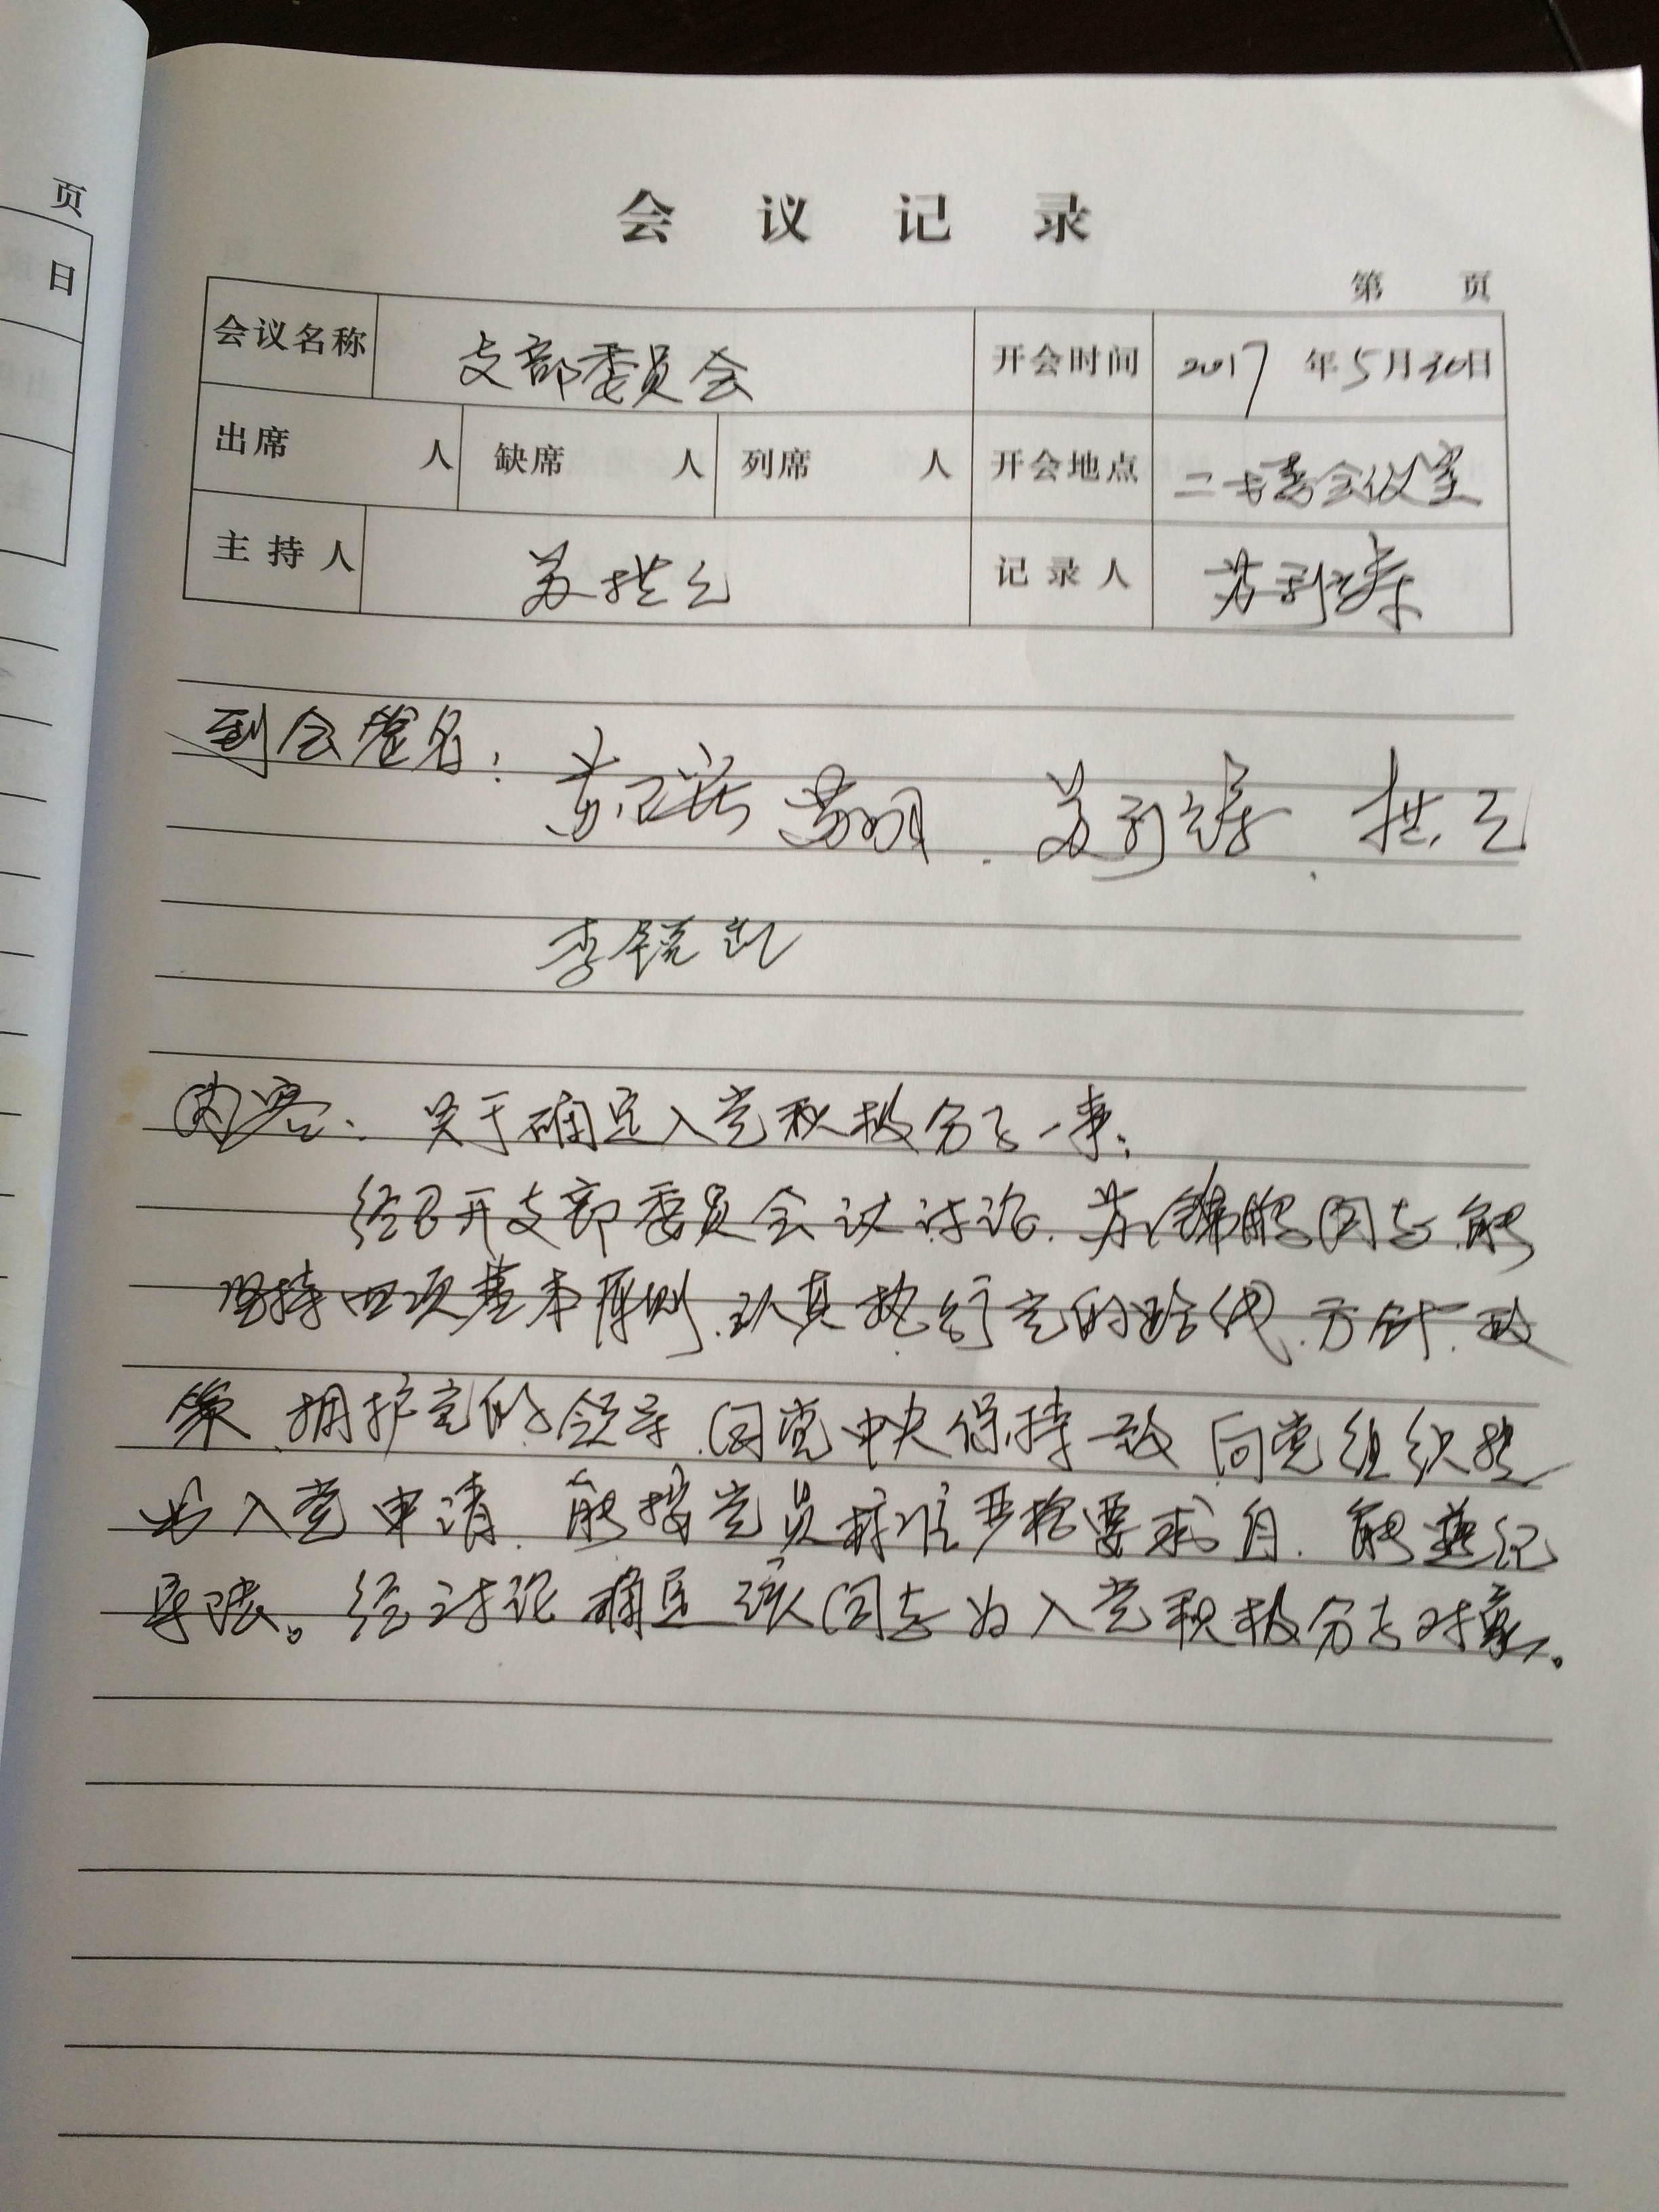 页
日
会议记录
第 页
会议名称 支部委员会 开会时间 2017年5月30日
出席 人 缺席 人 列席 人 开会地点 会议室
主持人 苏拱之 记录人 苏
到会签名：苏 苏 苏 拱之
李锐
内容：关于确定入党积极分子一事：
经召开支部委员会议讨论，苏锦鹏同志，能
坚持四项基本原则，认真执行党的路线、方针、政
策、拥护党的领导，同党中央保持一致 向党组织提
出入党申请，能按党员标准严格要求自，能遵纪
守法。经讨论确定该同志为入党积极分子对象。